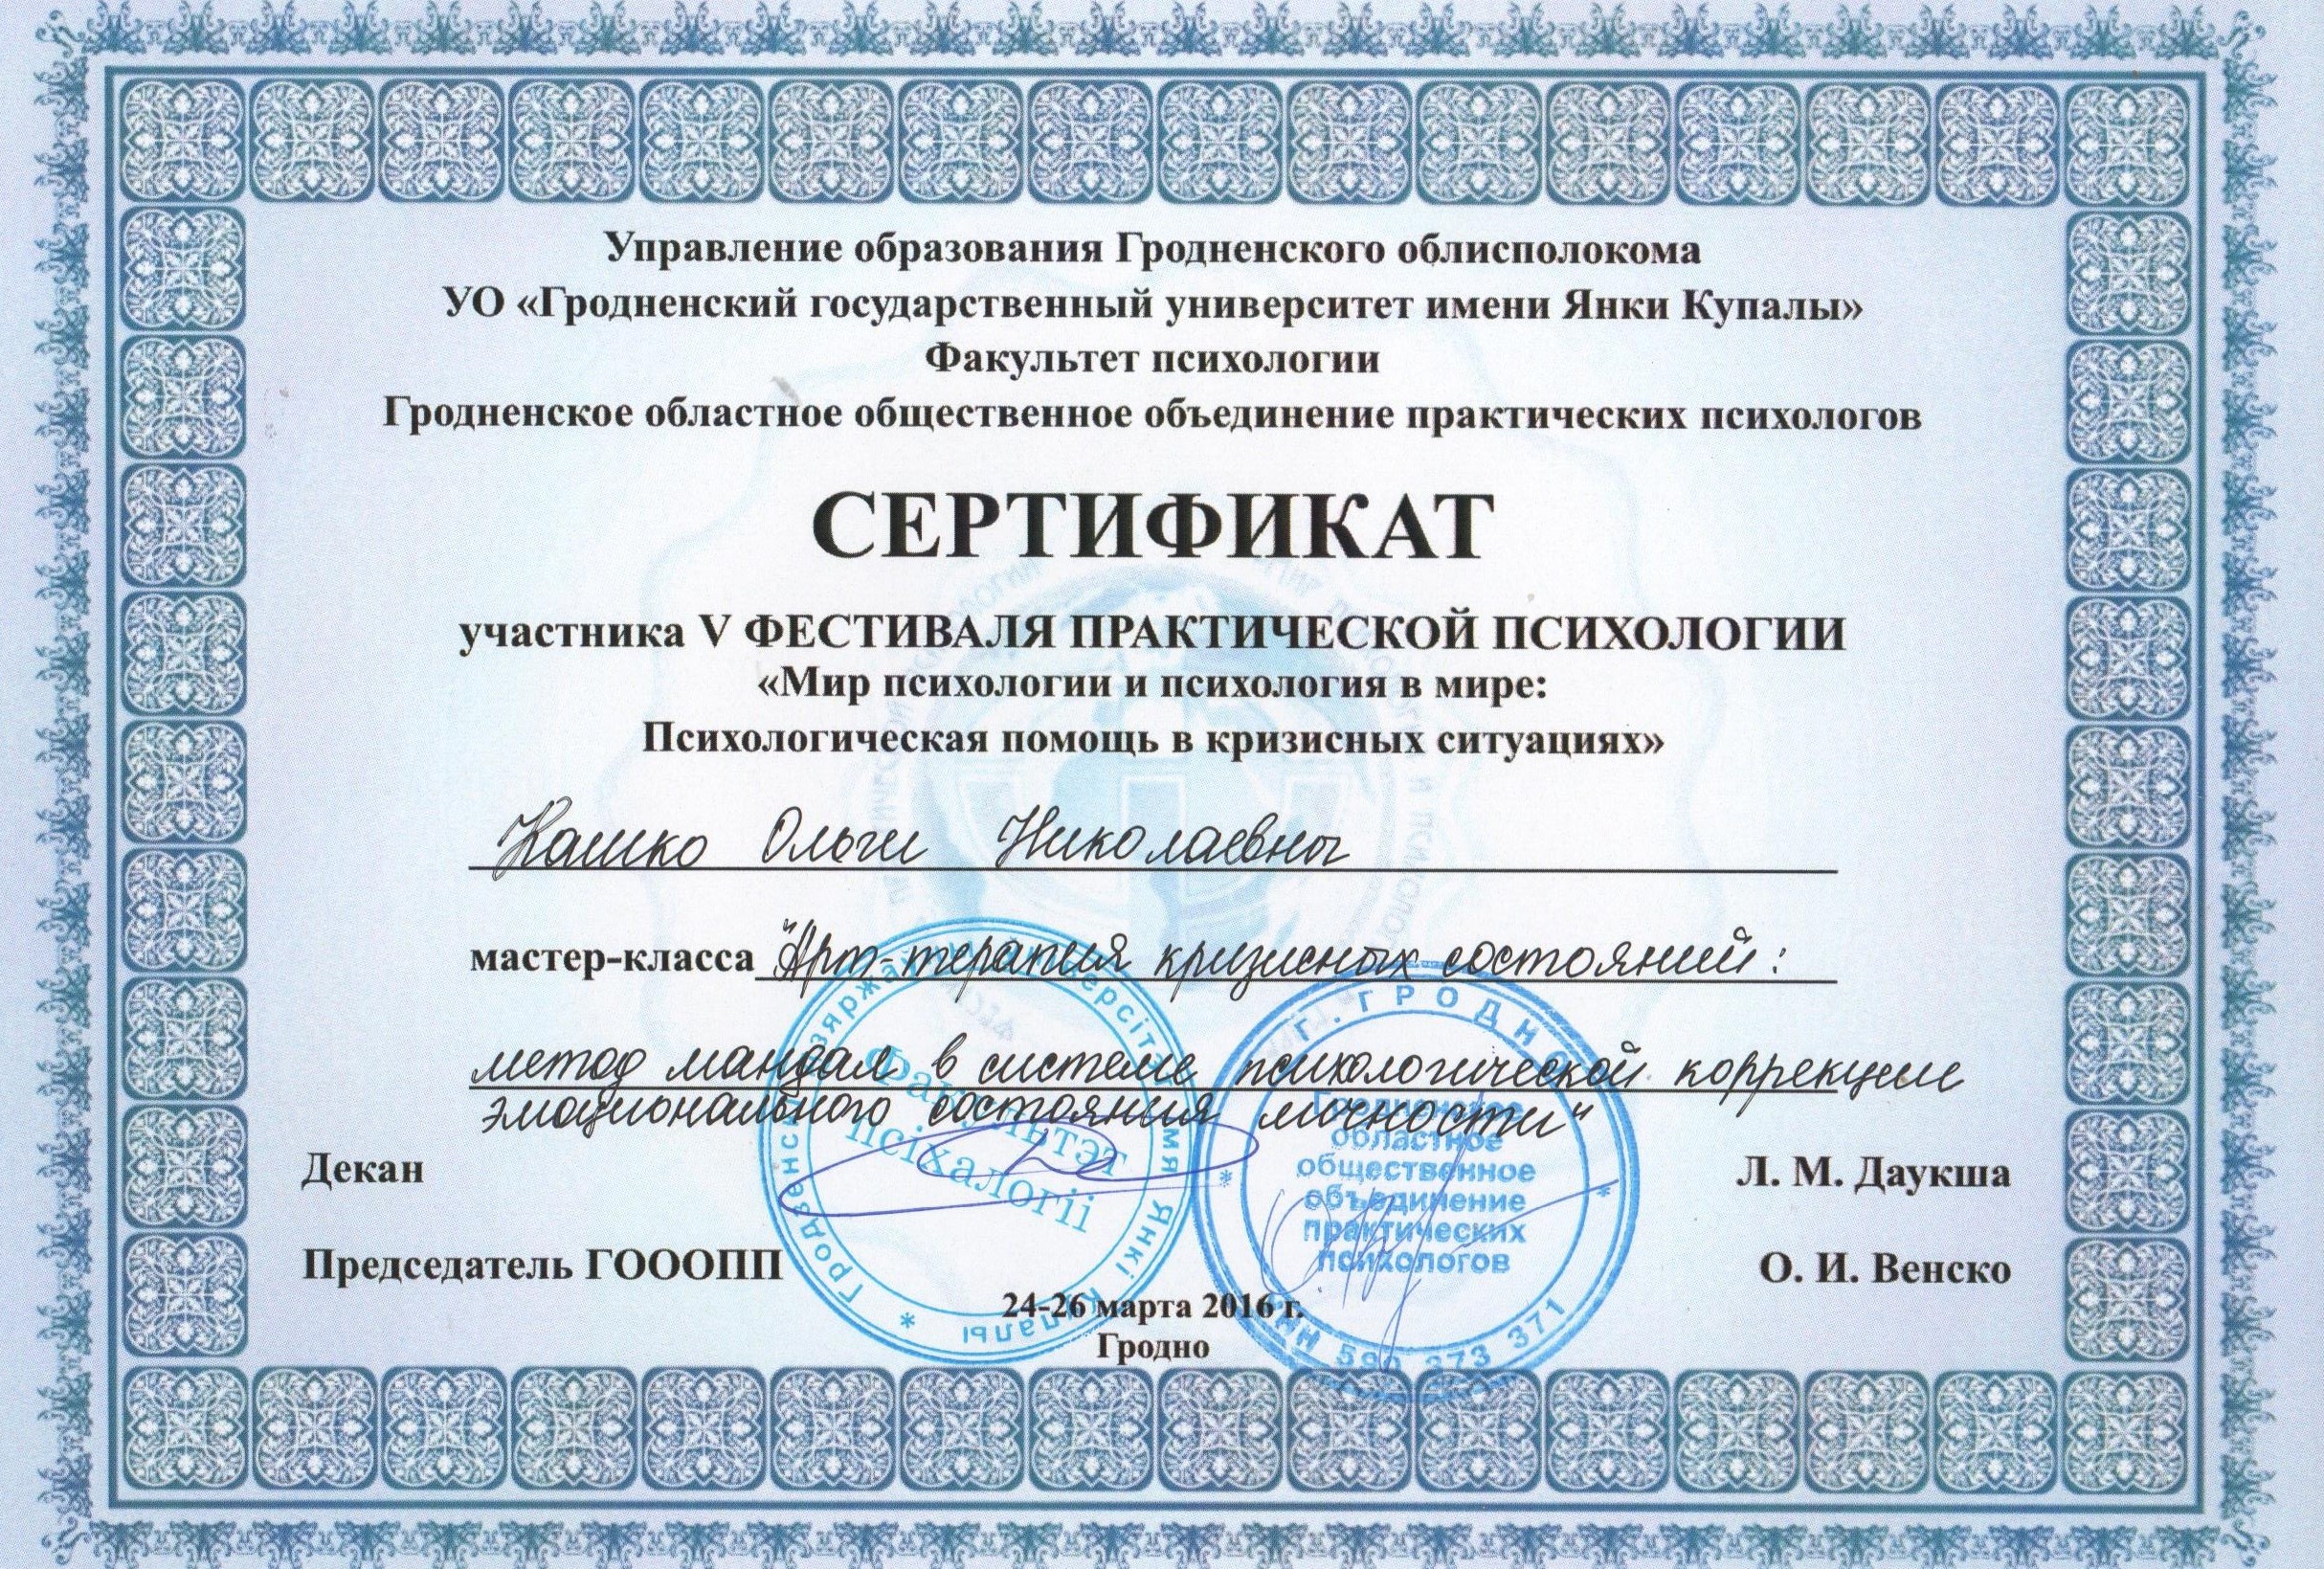 Управление образования Гродненского облисполокома
УО «Гродненский государственный университет имени Янки Купалы»
Факультет психологии
Гродненское областное общественное объединение практических психологов
СЕРТИФИКАТ
участника V ФЕСТИВАЛЯ ПРАКТИЧЕСКОЙ ПСИХОЛОГИИ
«Мир психологии и психология в мире:
Психологическая помощь в кризисных ситуациях»
Кашко Ольги Николаевны
мастер-класса "Арт-терапия кризисных состояний:
метод мандал в системе психологической коррекции
эмоционального состояния личности"
Декан
Л. М. Даукша
Председатель ГОООПП
О. И. Венско
24-26 марта 2016 г.
Гродно
Факультэт
псіхалогіі
Янкі Купалы
г. ГРОДНО
Гродненское
областное
общественное
объединение
практических
психологов
УНН 590 373 371